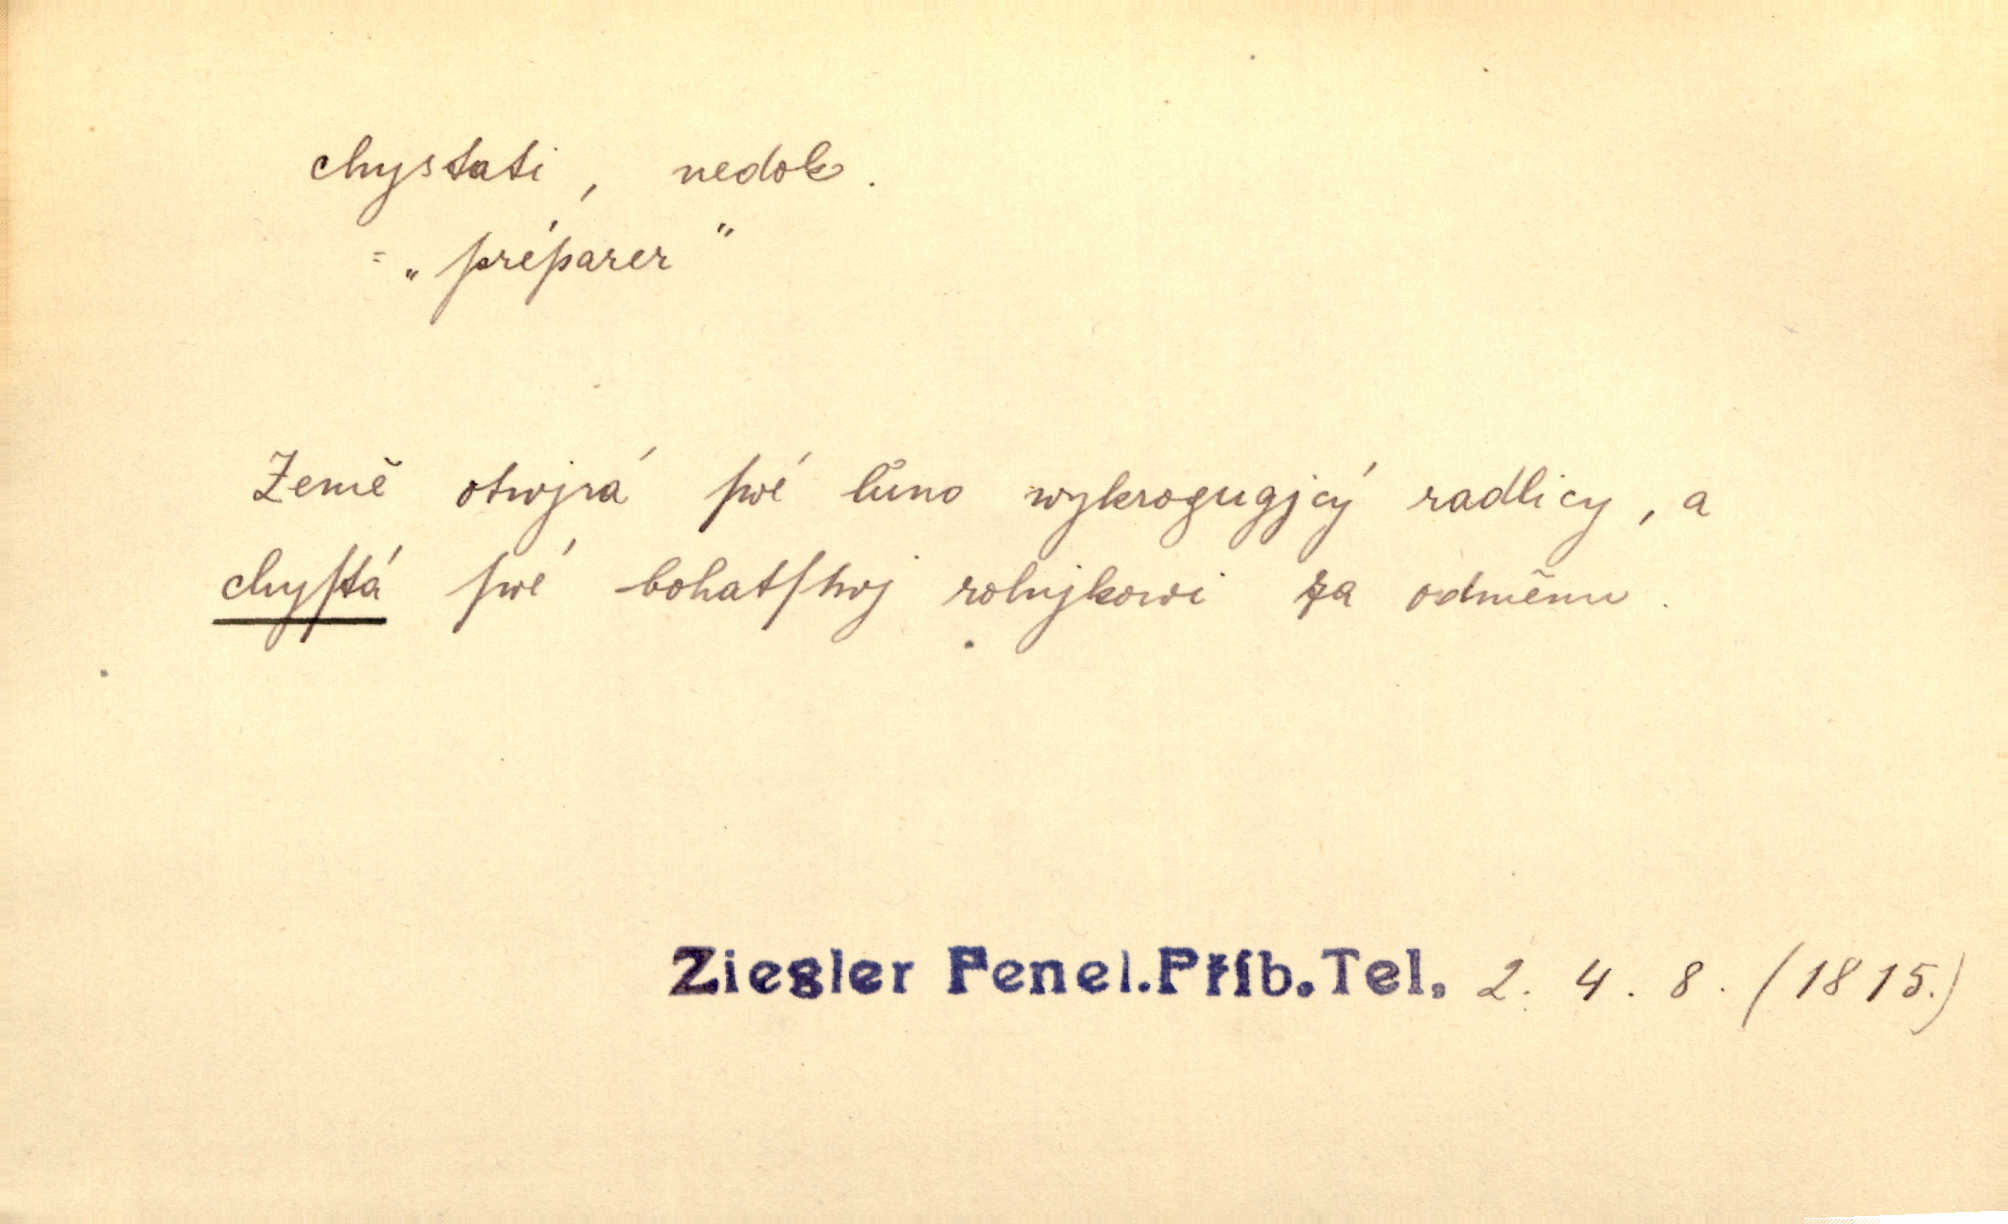 chystati, nedok.
= „préparer“
Země otwjrá ſwé lůno wykrogugjcý radlicy, a
chyſtá ſwé bohatſtwj rolnjkowi za odměnu.
Ziegler Fenel.Příb.Tel. 2. 4. 8. (1815.)